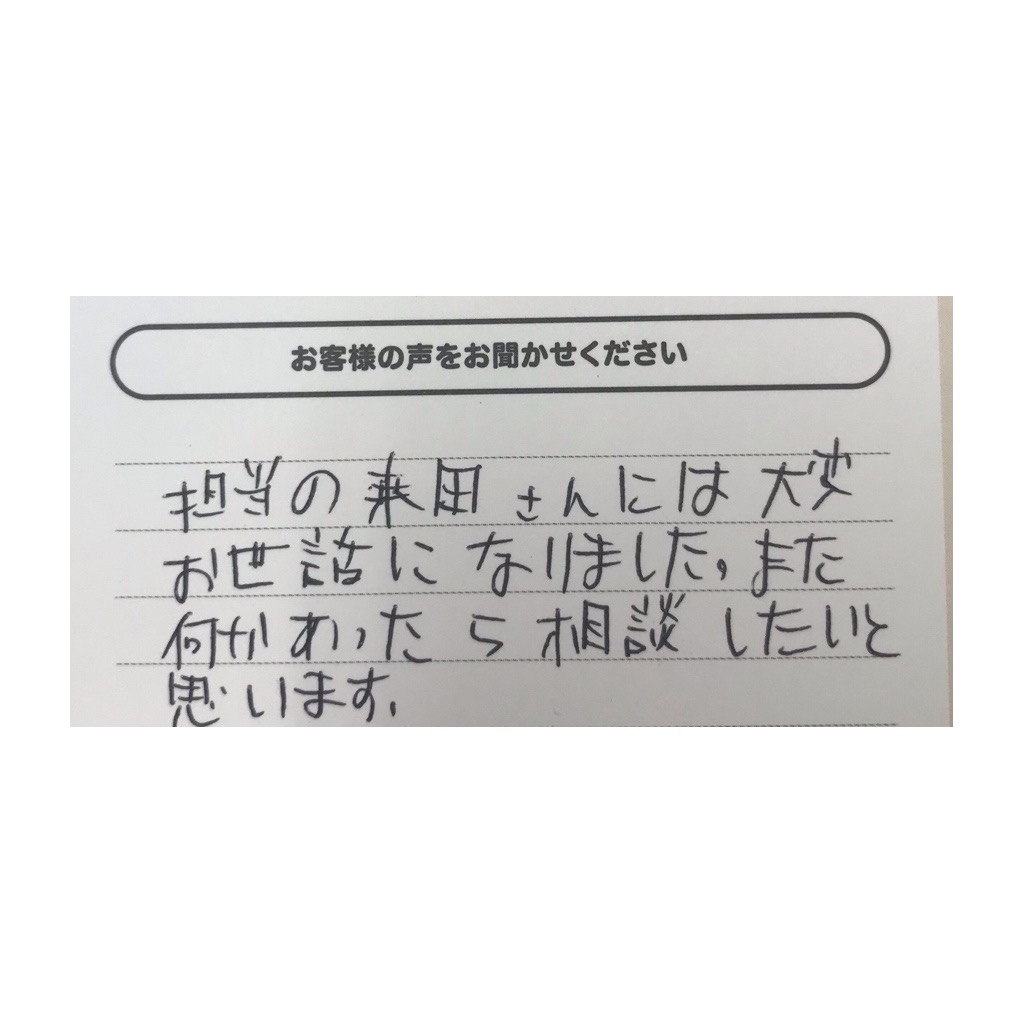 お客様の声をお聞かせください
担当の来田さんには大変
お世話になりました。また
何かあったら相談したいと
思います。